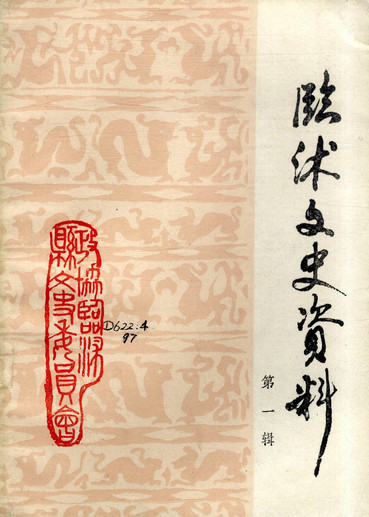 臨沭文史資料
第一辑
政协临沭
縣文史委員會
D622.4
97